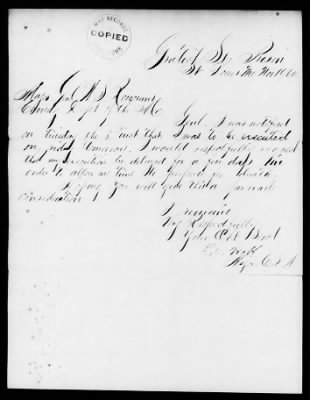 COPIED
Gratiot St Prison
St Louis Mo Nov
Maj Genl W S Rosecrans
Comd Dept of the Mo
Genl, I was notified
on Tuesday the 8 inst that I was to be executed
on friday tomorrow. I would respectfully request
that my execution be delayed for a few days in
order to allow me time to prepare for death.
Hoping you will give this a
consideration
I remain
Very Respectfully
Your Obt Servt
Maj C S A